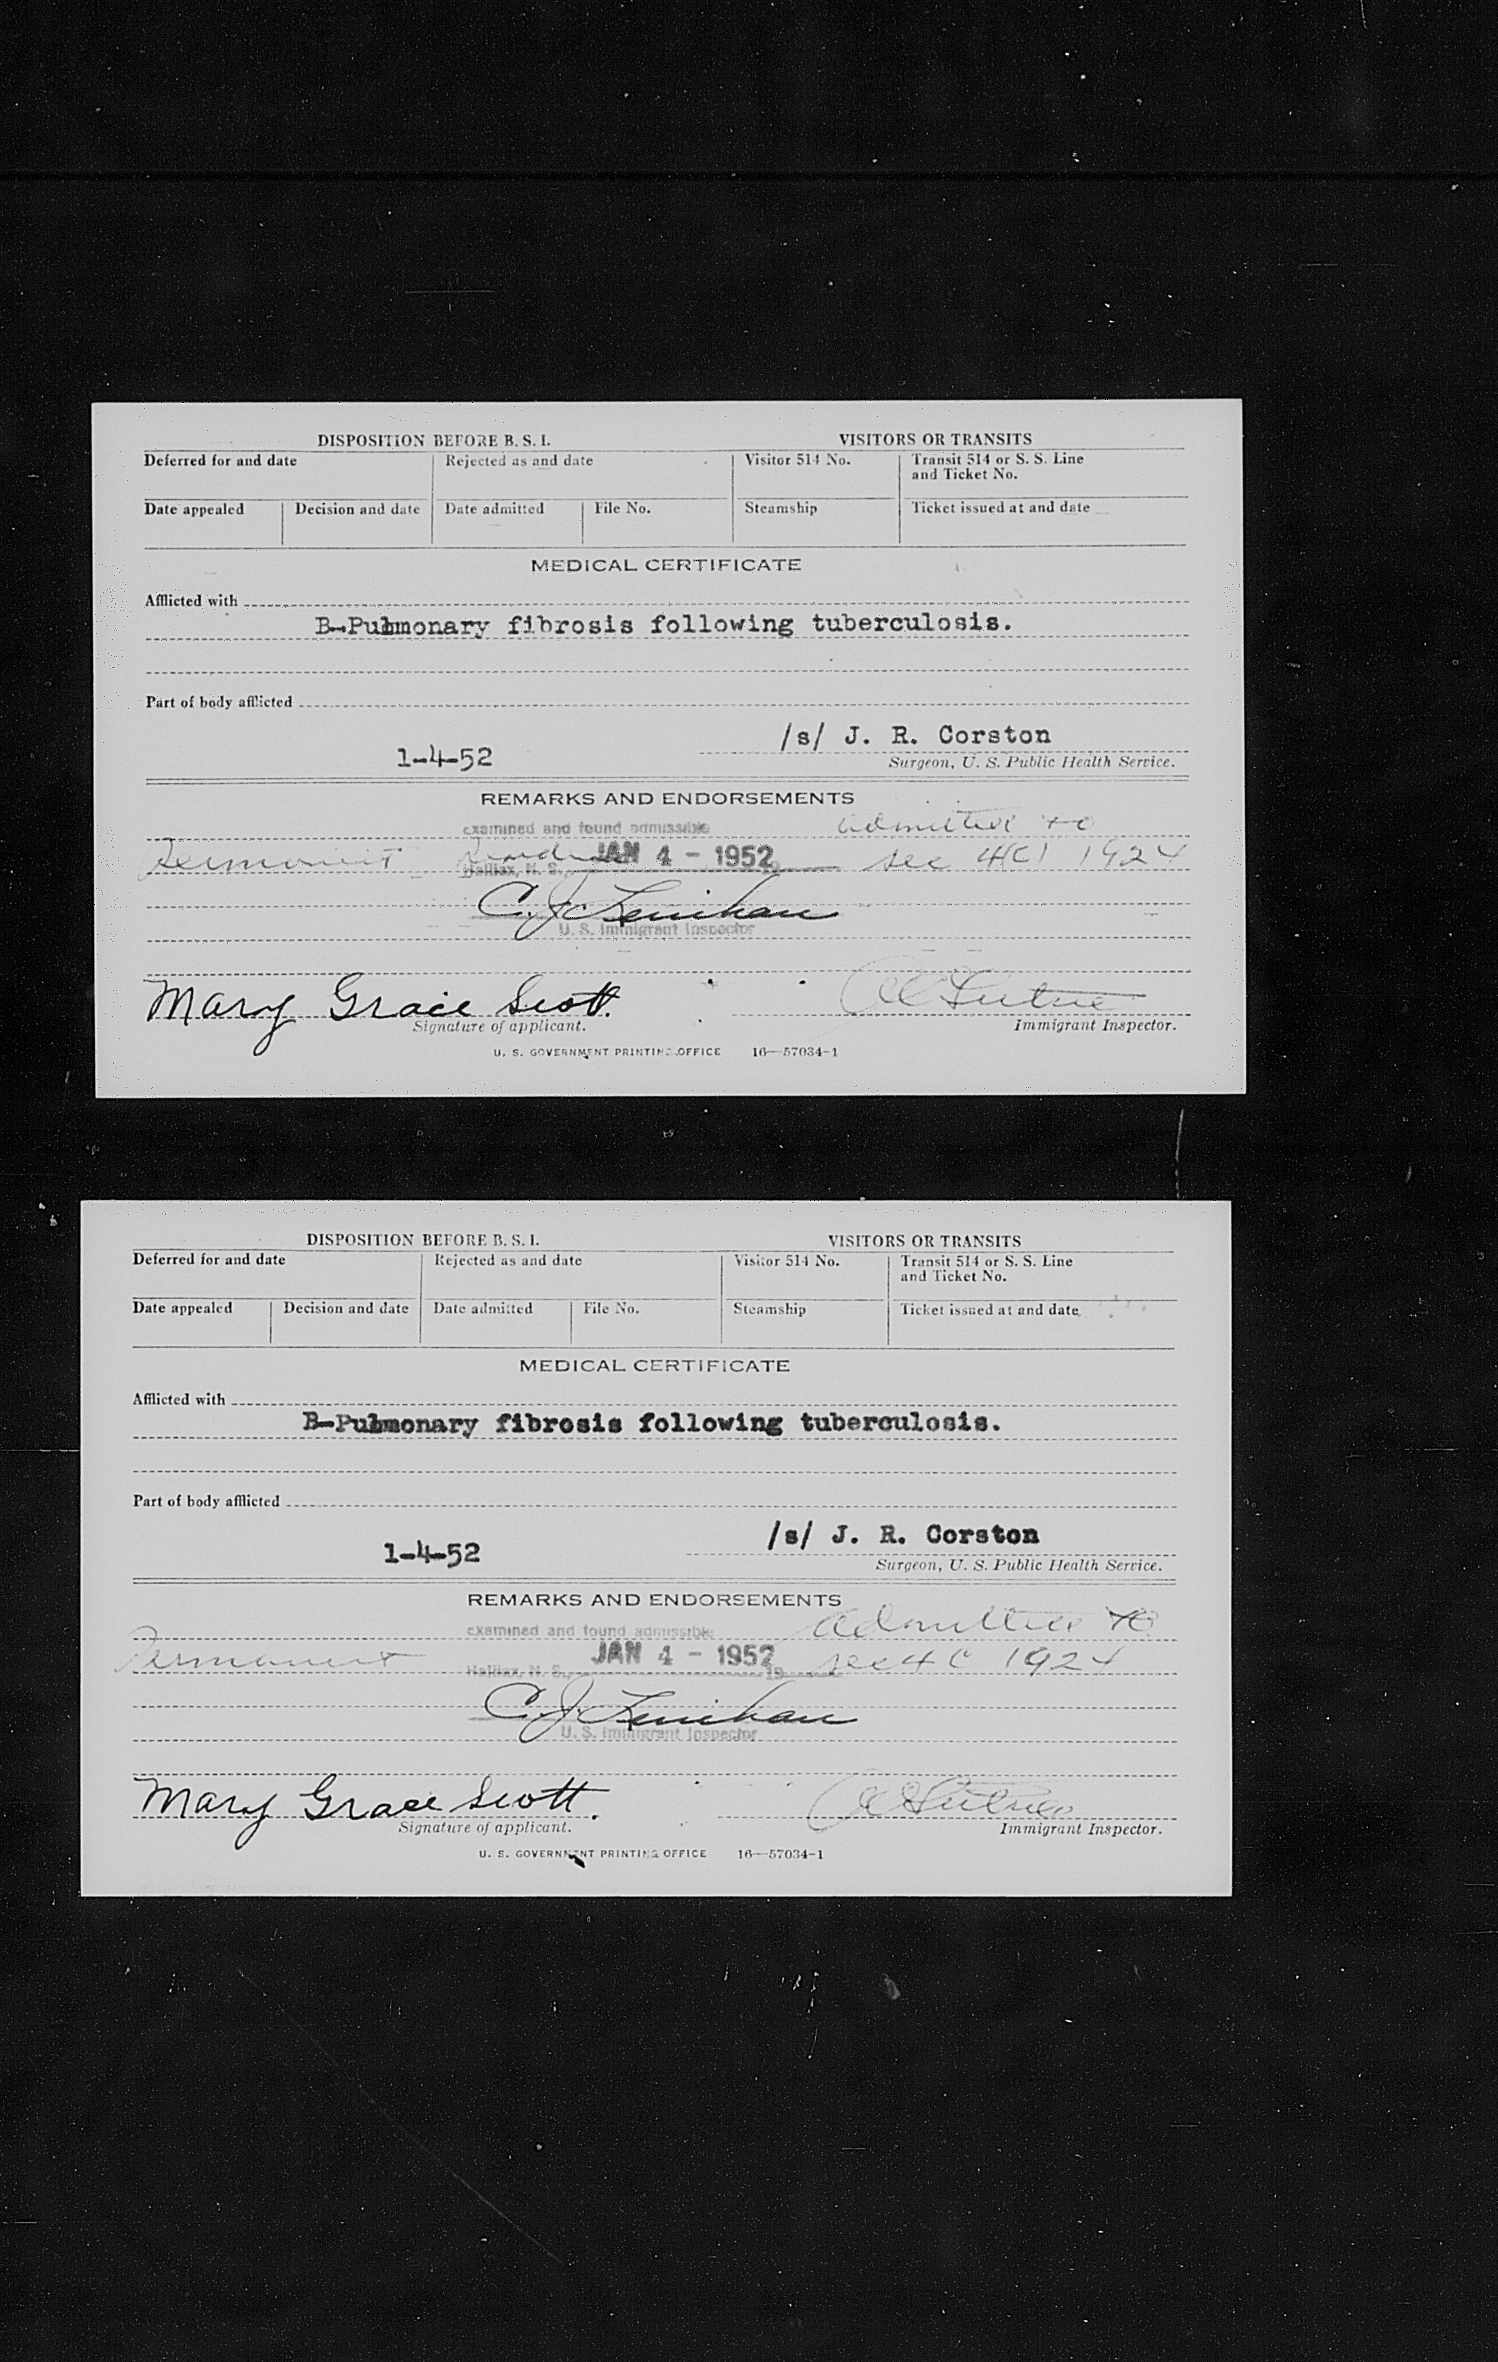 DISPOSITION BEFORE B. S. I. VISITORS OR TRANSITS
Deferred for and date Rejected as and date Visitor 514 No. Transit 514 or S. S. Line
and Ticket No.
Date appealed Decision and date Date admitted File No. Steamship Ticket issued at and date
MEDICAL CERTIFICATE
Afflicted with
B-Pulmonary fibrosis following tuberculosis.
Part of body afflicted
/s/ J. R. Corston
1-4-52
Surgeon, U. S. Public Health Service.
REMARKS AND ENDORSEMENTS
examined and found admissible admitted to
Permanent JAN 4 - 1952 sec 4(C) 1924
Halifax, N. S., 19
C. J. Lenihan
U. S. Immigrant Inspector
Mary Grace Scott.
Signature of applicant. Immigrant Inspector.
U. S. GOVERNMENT PRINTING OFFICE 16—57034-1
DISPOSITION BEFORE B. S. I. VISITORS OR TRANSITS
Deferred for and date Rejected as and date Visitor 514 No. Transit 514 or S. S. Line
and Ticket No.
Date appealed Decision and date Date admitted File No. Steamship Ticket issued at and date
MEDICAL CERTIFICATE
Afflicted with
B-Pulmonary fibrosis following tuberculosis.
Part of body afflicted
/s/ J. R. Corston
1-4-52
Surgeon, U. S. Public Health Service.
REMARKS AND ENDORSEMENTS
examined and found admissible admitted to
Permanent JAN 4 - 1952 sec 4 C 1924
Halifax, N. S., 19
C. J. Lenihan
U. S. Immigrant Inspector
Mary Grace Scott.
Signature of applicant. Immigrant Inspector.
U. S. GOVERNMENT PRINTING OFFICE 16—57034-1